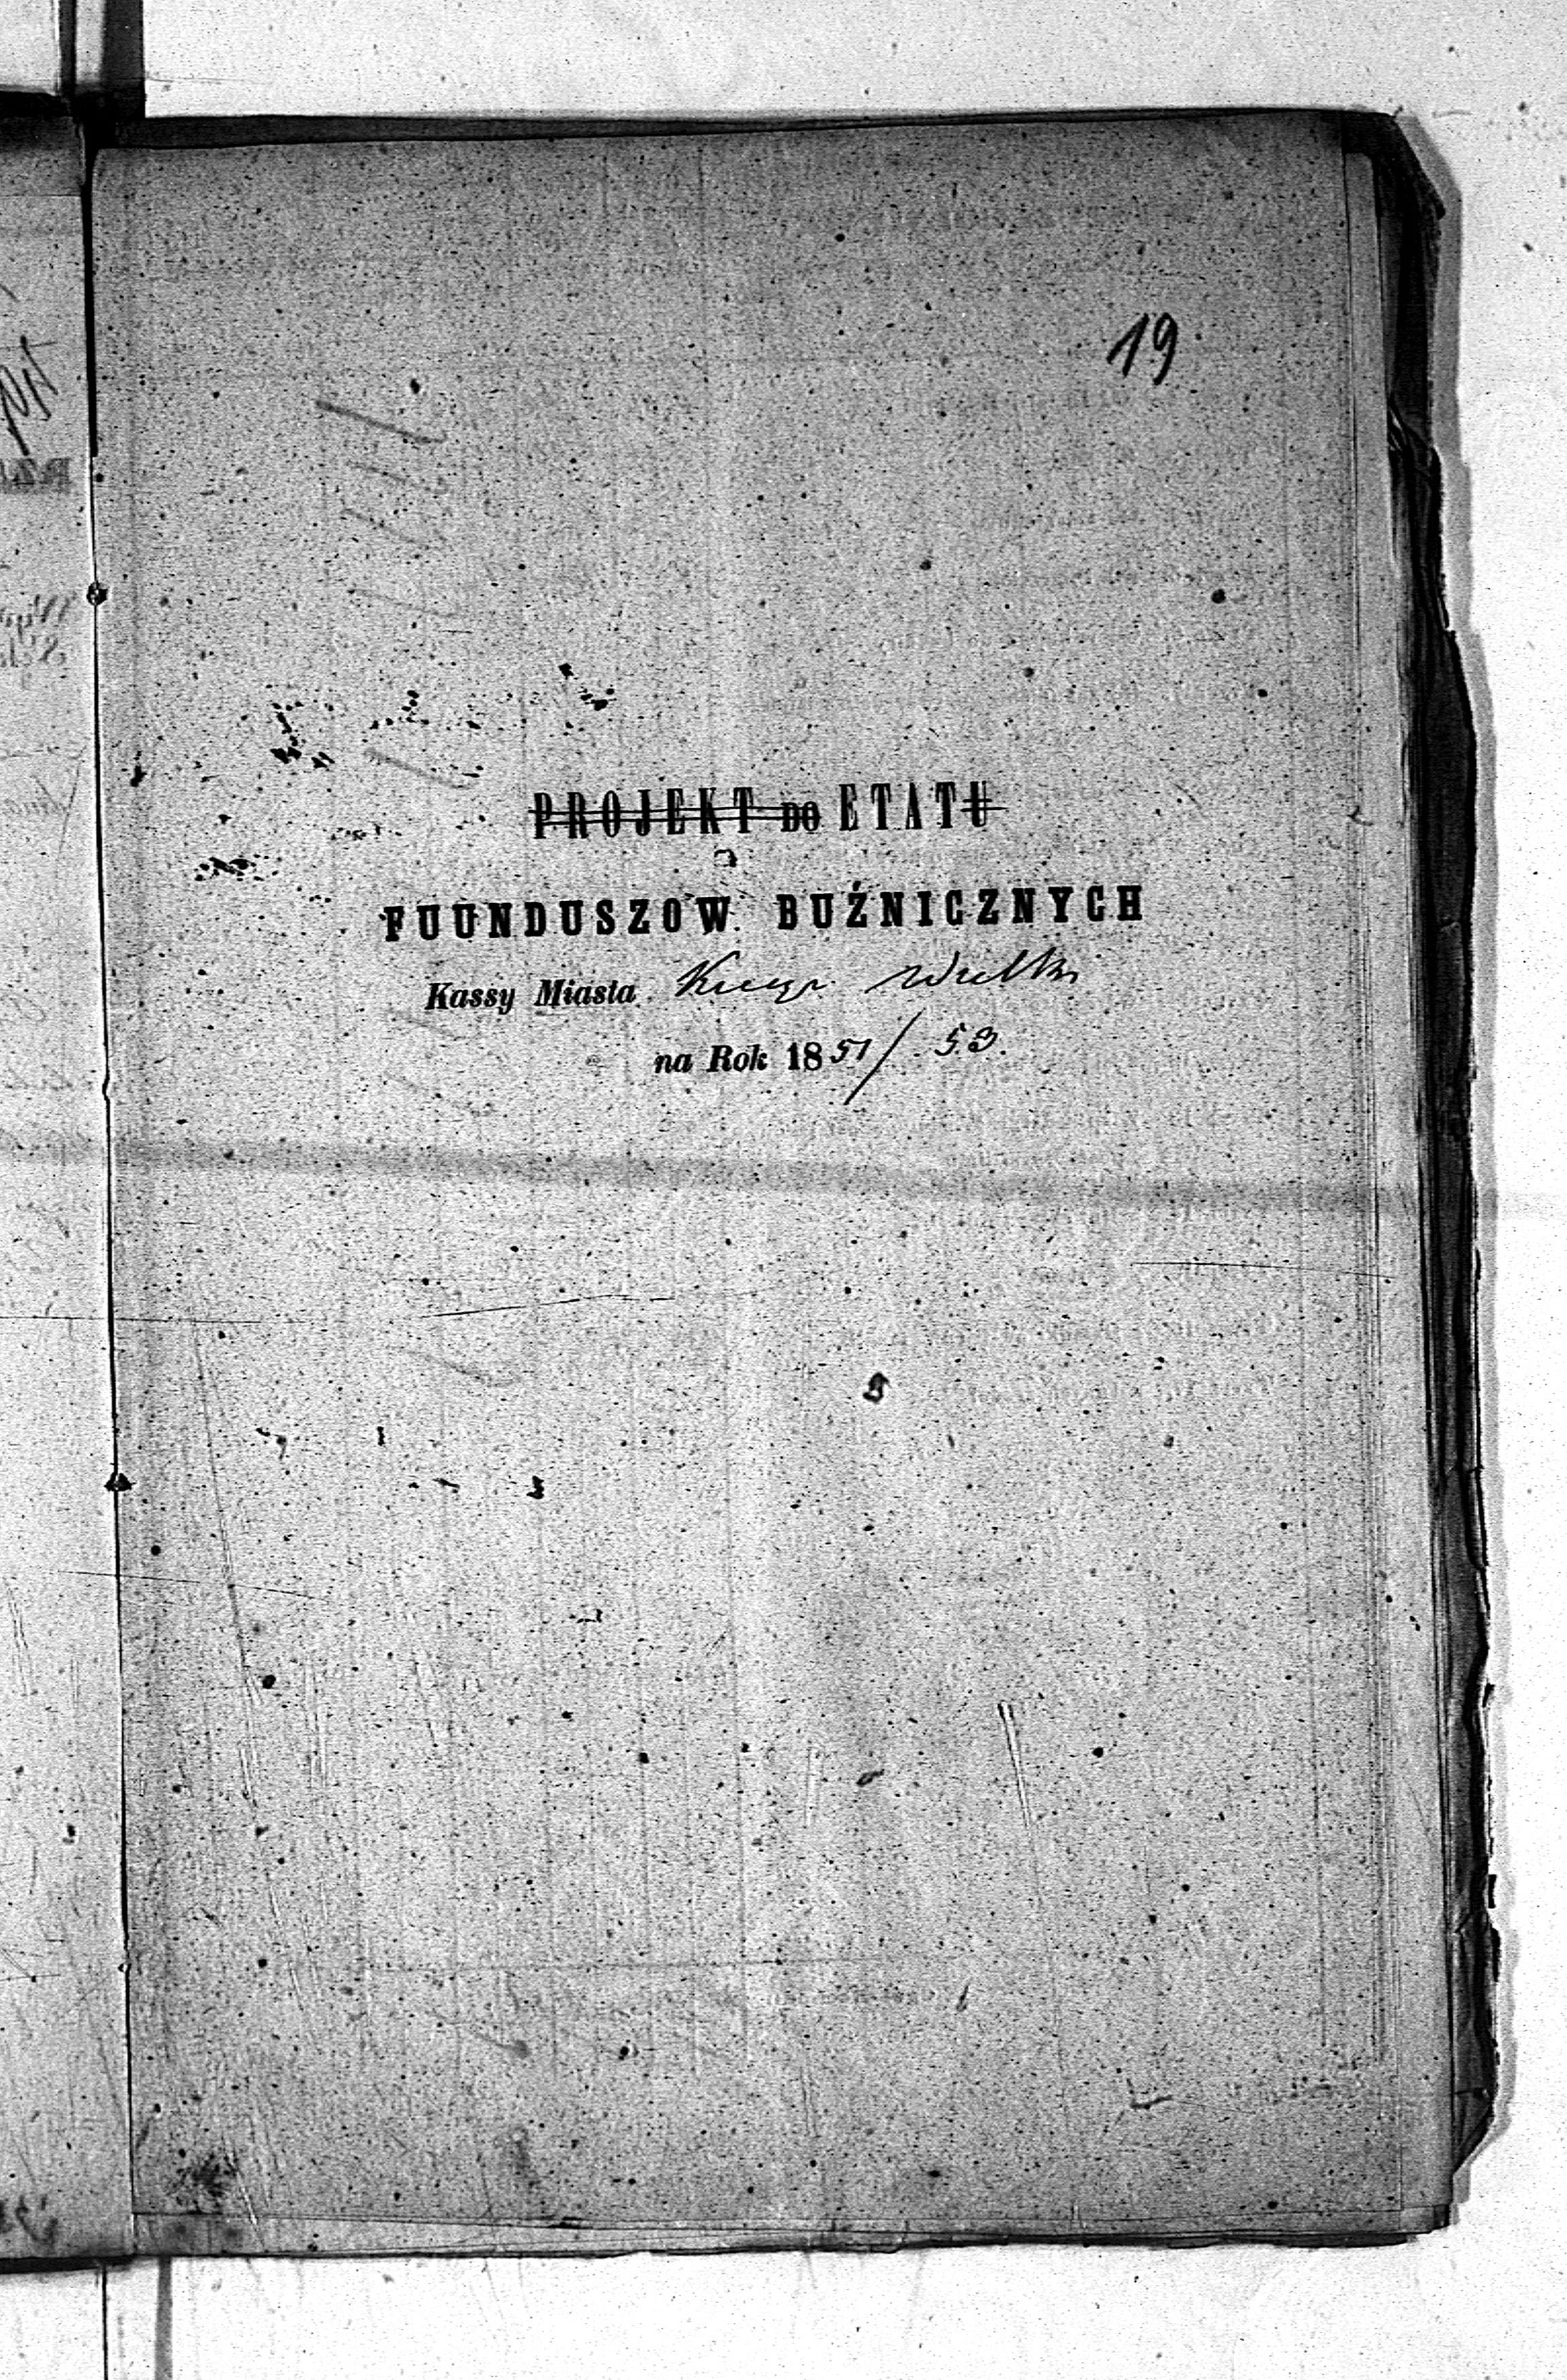 19
PROJEKT DO ETATU
FUUNDUSZOW BUŹNICZNYCH
Kassy Miasta
na Rok 1851/53.